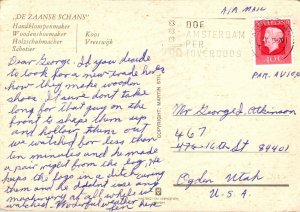 „DE ZAANSE SCHANS”
Handklompenmaker
Woodenshoemaker
Holzschuhmacher
Sabotier
Koos
Vreeswijk
Dear George: If you decide
to look for a new trade here's
how they make wooden
shoes. I sure don't take
long for that guy on the
front to shape them up
and hollow them out
we watched for less than
ten minutes and he made
a pair right from the log. He
keeps the logs in a ditch using
them and he didn't use any
machinery at all while we
watched. Wonderful weather
COPYRIGHT: MARTIN STIL
AIR MAIL
DOE
AMSTERDAM
PER
RIJVERBODS
40c
PAR AVION
Mr George I. Atkinson
467
475-16th St 84401
Ogden Utah
U.S.A.